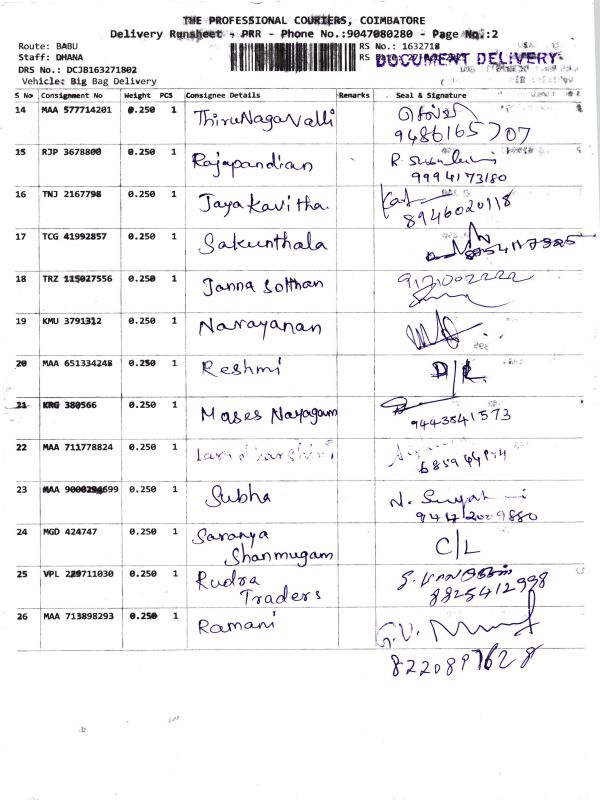 THE PROFESSIONAL COURIERS, COIMBATORE
Delivery Runsheet - PRR - Phone No.:9047080280 - Page No.:2
Route: BABU RS No.: 1632718
Staff: DHANA RS DOCUMENT DELIVERY
DRS No.: DCJB163271802
Vehicle: Big Bag Delivery
S No Consignment No Weight PCS Consignee Details Remarks Seal & Signature
14 MAA 577714201 0.250 1 ThiruNagaValli
9486165707
15 RJP 3678800 0.250 1 Rajapandian
9994173180
16 TNJ 2167798 0.250 1 Jayakavitha.
8946020118
17 TCG 41992857 0.250 1 Sakunthala
18 TRZ 115027556 0.250 1 Janna Solthan
19 KMU 3791312 0.250 1 Narayanan
20 MAA 651334248 0.250 1 Reshmi D/R
21 KRG 380566 0.250 1 Moses Nayagam
9443541573
22 MAA 711778824 0.250 1
23 MAA 0.250 1 Subha
24 MGD 424747 0.250 1 Saranya
Shanmugam C/L
25 VPL 0.250 1 Rudra
Traders 8825412998
26 MAA 713898293 0.250 1 Ramani
8220897628